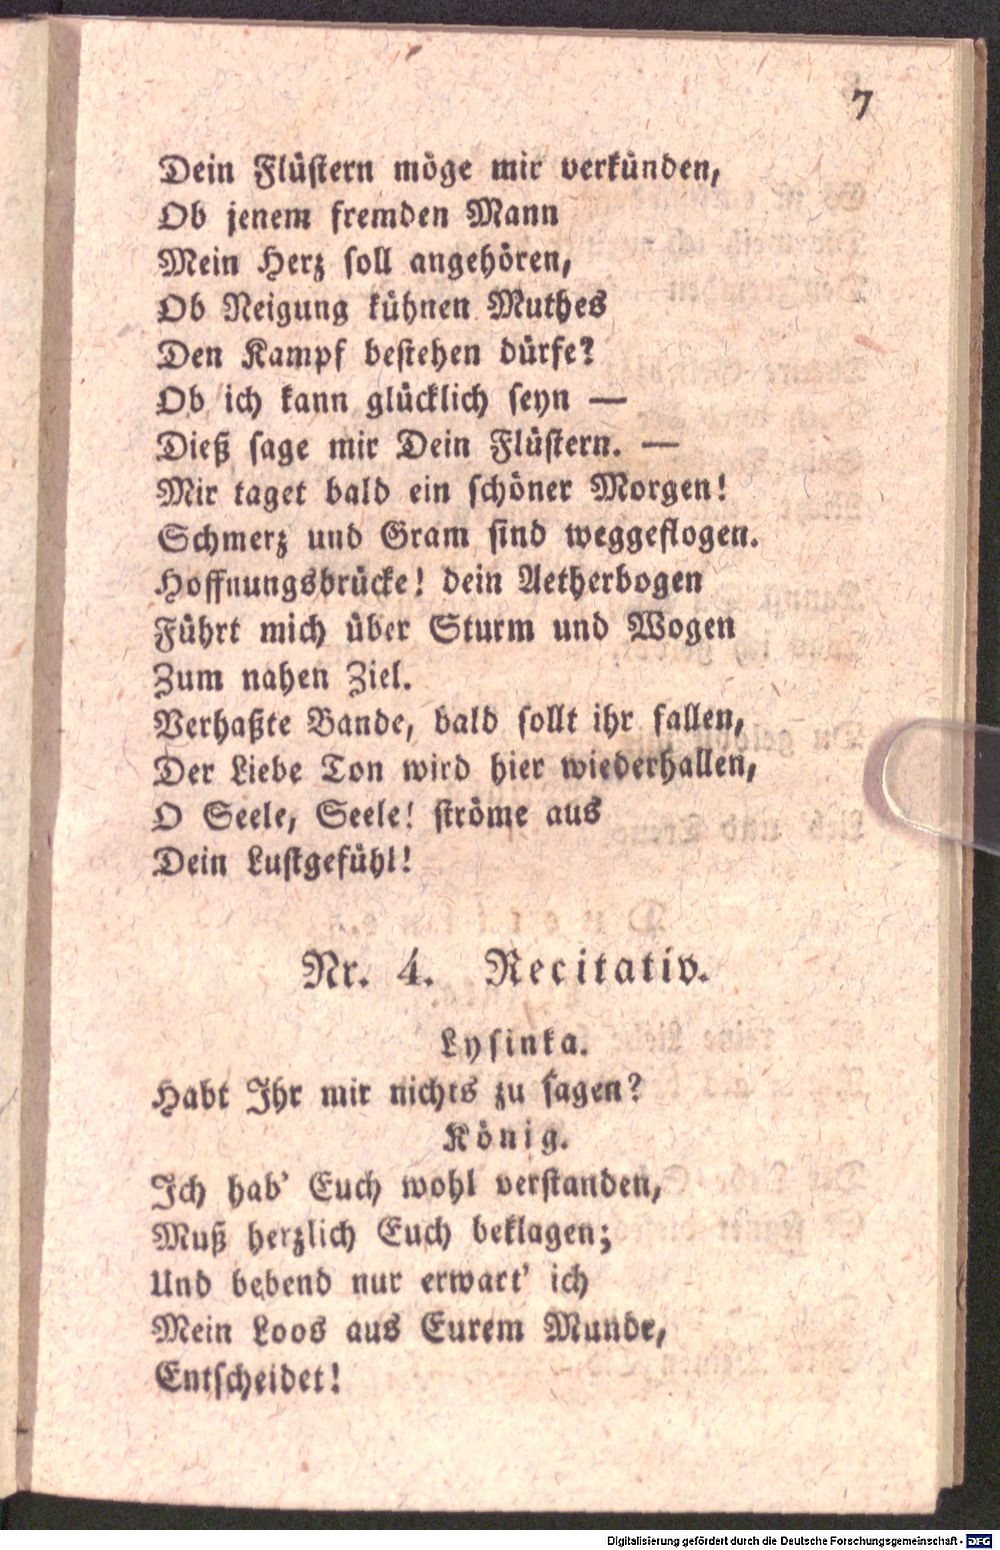 7
Dein Flüstern möge mir verkünden,
Ob jenem fremden Mann
Mein Herz soll angehören,
Ob Neigung kühnen Muthes
Den Kampf bestehen dürfe?
Ob ich kann glücklich seyn —
Dieß sage mir Dein Flüstern. —
Mir taget bald ein schöner Morgen!
Schmerz und Gram sind weggeflogen.
Hoffnungsbrücke! dein Aetherbogen
Führt mich über Sturm und Wogen
Zum nahen Ziel.
Verhaßte Bande, bald sollt ihr fallen,
Der Liebe Ton wird hier wiederhallen,
O Seele, Seele! ströme aus
Dein Lustgefühl!
Nr. 4. Recitativ.
Lysinka.
Habt Ihr mir nichts zu sagen?
König.
Ich hab' Euch wohl verstanden,
Muß herzlich Euch beklagen;
Und bebend nur erwart' ich
Mein Loos aus Eurem Munde,
Entscheidet!
Digitalisierung gefördert durch die Deutsche Forschungsgemeinschaft - DFG